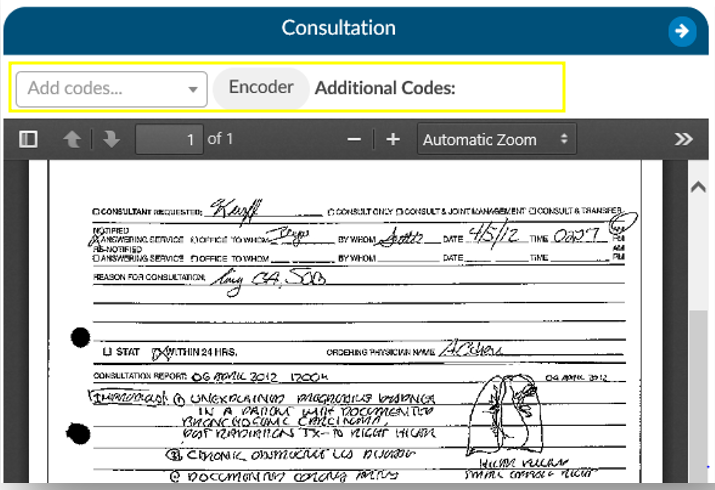 Consultation
Add codes... Encoder Additional Codes:
1 of 1 Automatic Zoom
CONSULTANT REQUESTED: CONSULT ONLY CONSULT & JOINT MANAGEMENT CONSULT & TRANSFER
NOTIFIED AM
ANSWERING SERVICE OFFICE TO WHOM BY WHOM DATE 4/5/12 TIME 0227 PM
RE-NOTIFIED AM
ANSWERING SERVICE OFFICE TO WHOM BY WHOM DATE TIME PM
REASON FOR CONSULTATION: lung CA, SOB
STAT WITHIN 24 HRS. ORDERING PHYSICIAN NAME
CONSULTATION REPORT: 06 APRIL 2012 1200h 06 APRIL 2012
① UNEXPLAINED PROGRESSIVE DYSPNEA
IN A PATIENT WITH DOCUMENTED
BRONCHOGENIC CARCINOMA,
POST RADIATION TX TO RIGHT HILAR
② CHRONIC OBSTRUCTIVE LUNG DISEASE
DOCUMENTED